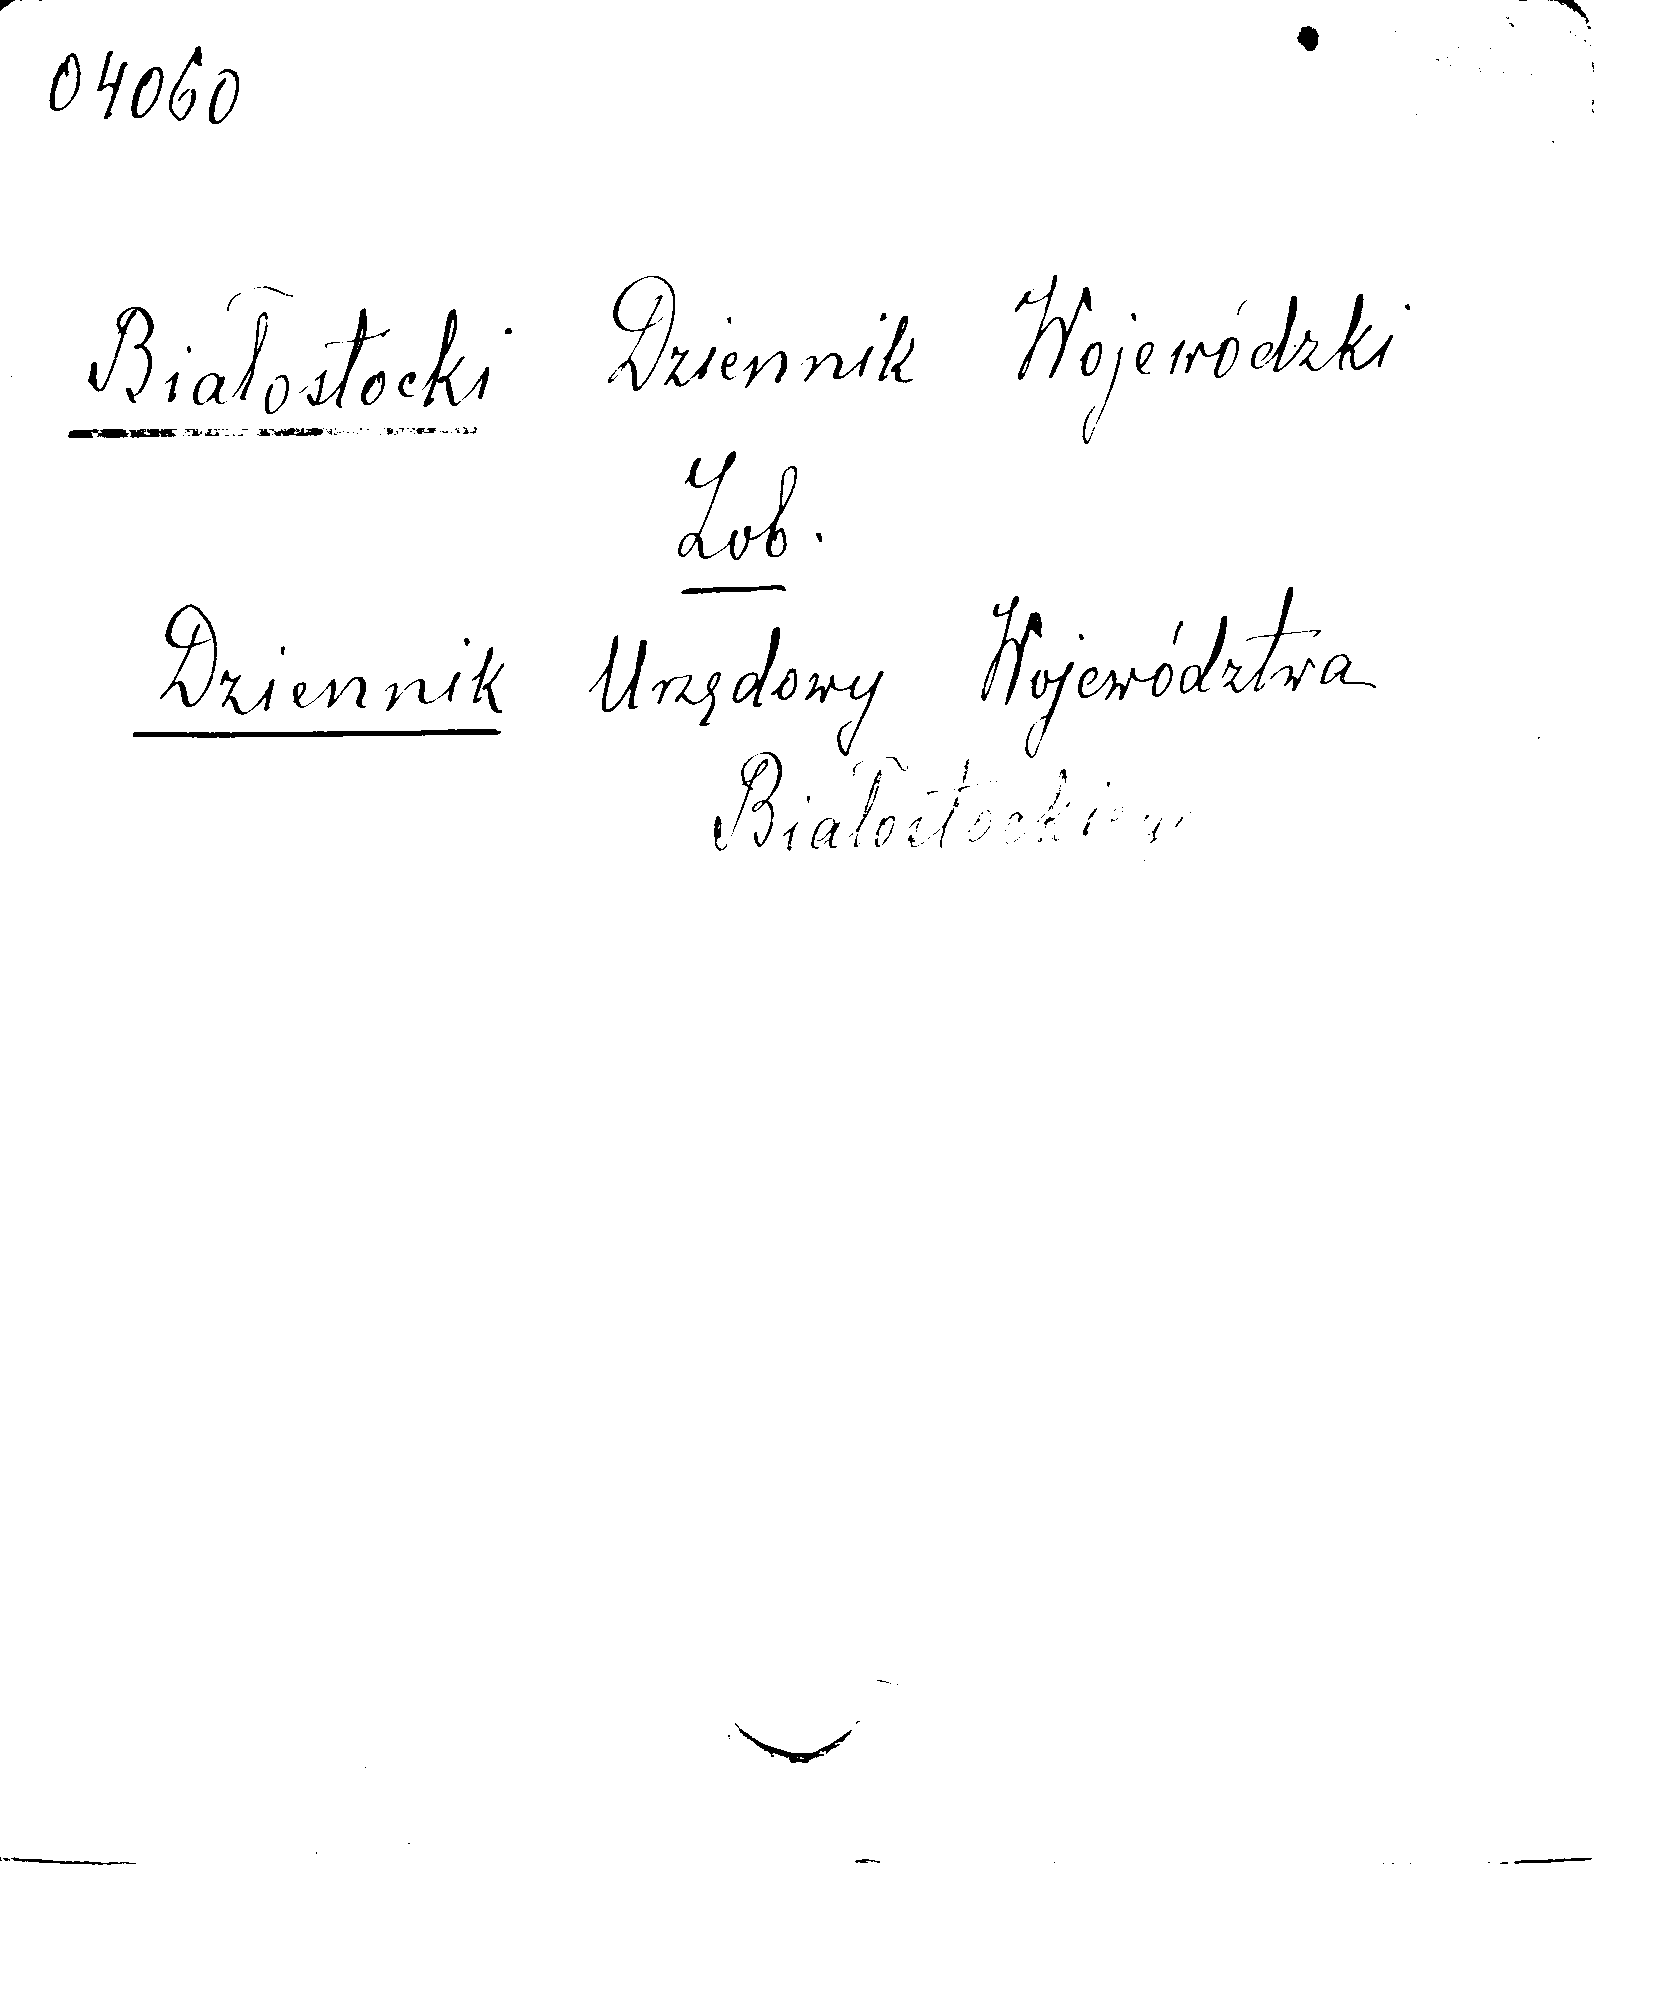 04060
Białostocki Dziennik Wojewódzki
Zob.
Dziennik Urzędowy Województwa
Białostockiego